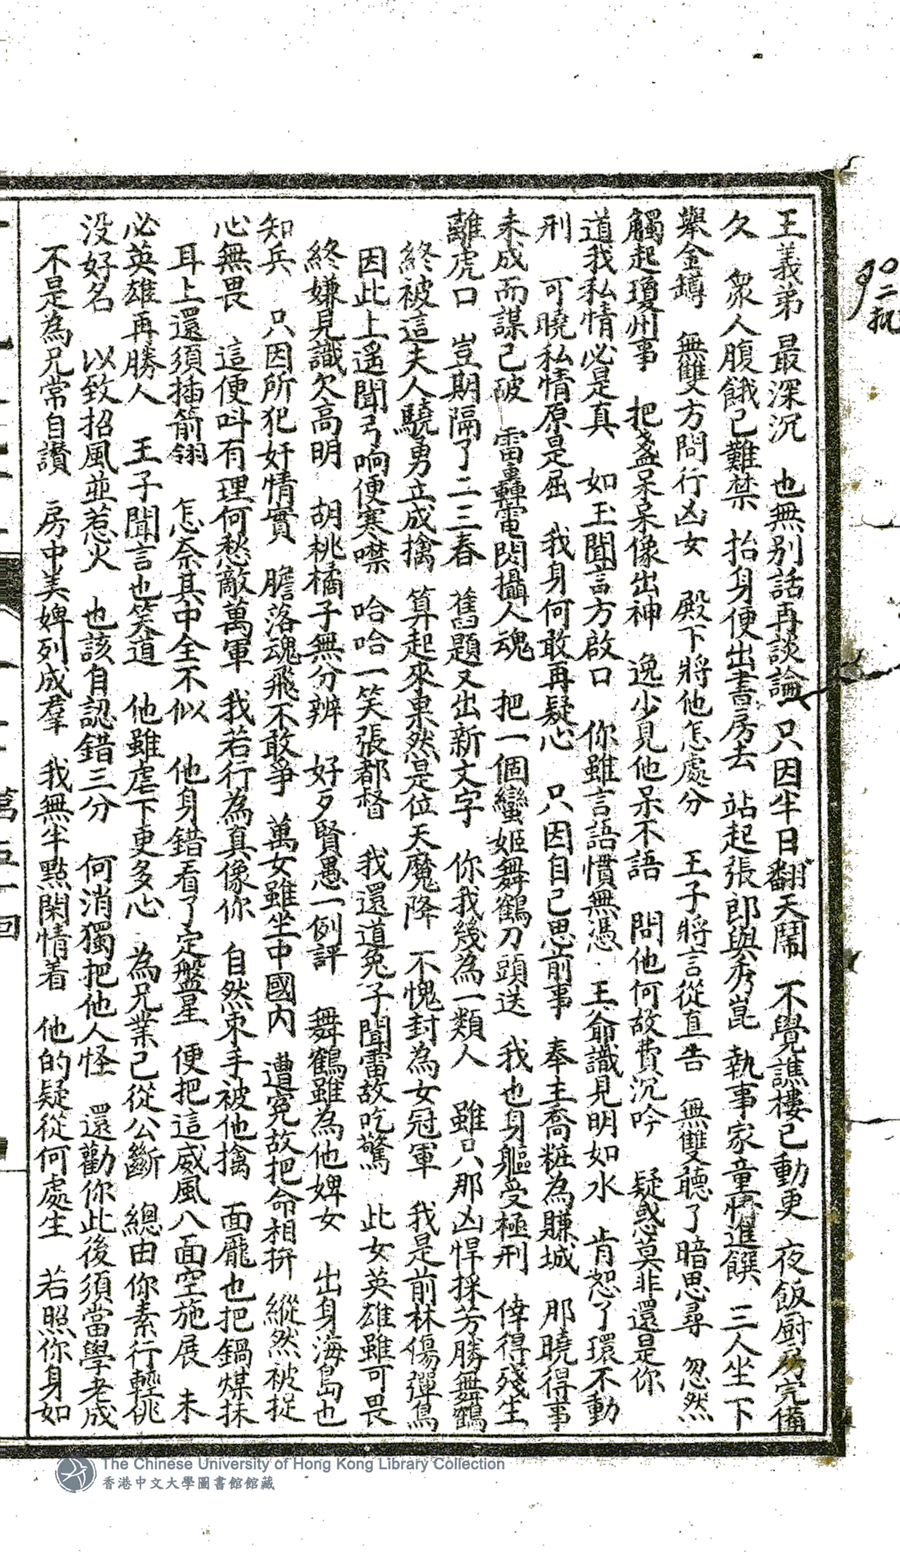 王義弟 最深沉 也無別話再談論 只因半日翻天鬧 不覺譙樓已動更 夜飯厨房完備
久 衆人腹餓已難禁 抬身便出書房去 站起張郎與秀崑 執事家童忙進饌 三人坐下
舉金罇 無雙方問行凶女 殿下將他怎處分 王子將言從直告 無雙聽了暗思尋 忽然
觸起瓊州事 把盞呆呆像出神 逸少見他呆不語 問他何故費沉吟 疑惑莫非還是你
道我私情必是真 如玉聞言方啟口 你雖言語慣無憑 王爺識見明如水 肯恕了環不動
刑 可曉私情原是屈 我身何敢再疑心 只因自己思前事 奉主喬粧為賺城 那曉得事
未成而謀已破 雷轟電閃攝人魂 把一個蠻姬舞鶴刀頭送 我也身軀受極刑 倖得殘生
離虎口 豈期隔了二三春 舊題又出新文字 你我幾為一類人 雖只那凶悍採芳勝舞鶴
終被這夫人驍勇立成擒 算起來果然是位天魔降 不愧封為女冠軍 我是前林傷彈鳥
因此上遥聞弓响便寒噤 哈哈一笑張都督 我還道兔子聞雷故吃驚 此女英雄雖可畏
終嫌見識欠高明 胡桃橘子無分辨 好歹賢愚一例評 舞鶴雖為他婢女 出身海島也
知兵 只因所犯奸情實 膽落魂飛不敢爭 萬女雖坐中國內 遭冤故把命相拚 縱然被捉
心無畏 這便叫有理何愁敵萬軍 我若行為真像你 自然束手被他擒 面龐也把鍋煤抹
耳上還須插箭翎 怎奈其中全不似 他身錯看了定盤星 便把這威風八面空施展 未
必英雄再勝人 王子聞言也笑道 他雖虐下更多心 為兄業已從公斷 總由你素行輕桃
没好名 以致招風並惹火 也該自認錯三分 何消獨把他人怪 還勸你此後須當學老成
不是為兄常自讚 房中美婢列成羣 我無半點閑情着 他的疑從何處生 若照你身如
第五十回
二
The Chinese University of Hong Kong Library Collection
香港中文大學圖書館館藏